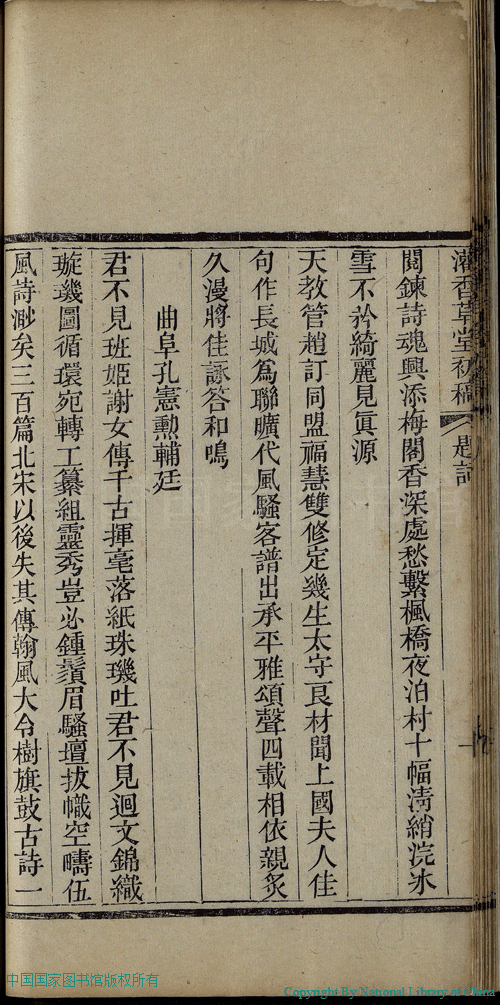 香草堂初稿 題詞
閣鍊詩魂興添梅閣香深處愁繫楓橋夜泊村十幅淸綃浣冰
雪不矜綺麗見眞源
天教管趙訂同盟福慧雙修定幾生太守良材聞上國夫人佳
句作長城爲聯曠代風騷客譜出承平雅頌聲四載相依親炙
久漫將佳詠答和鳴
曲阜孔憲勳輔廷
君不見班姬謝女傳千古揮毫落紙珠璣吐君不見迴文錦織
璇璣圖循環宛轉工纂組靈秀豈必鍾鬚眉騷壇拔幟空疇伍
風詩渺矣三百篇北宋以後失其傳翰風大令樹旗鼓古詩一
中国国家图书馆版权所有
Copyright By National Library of China